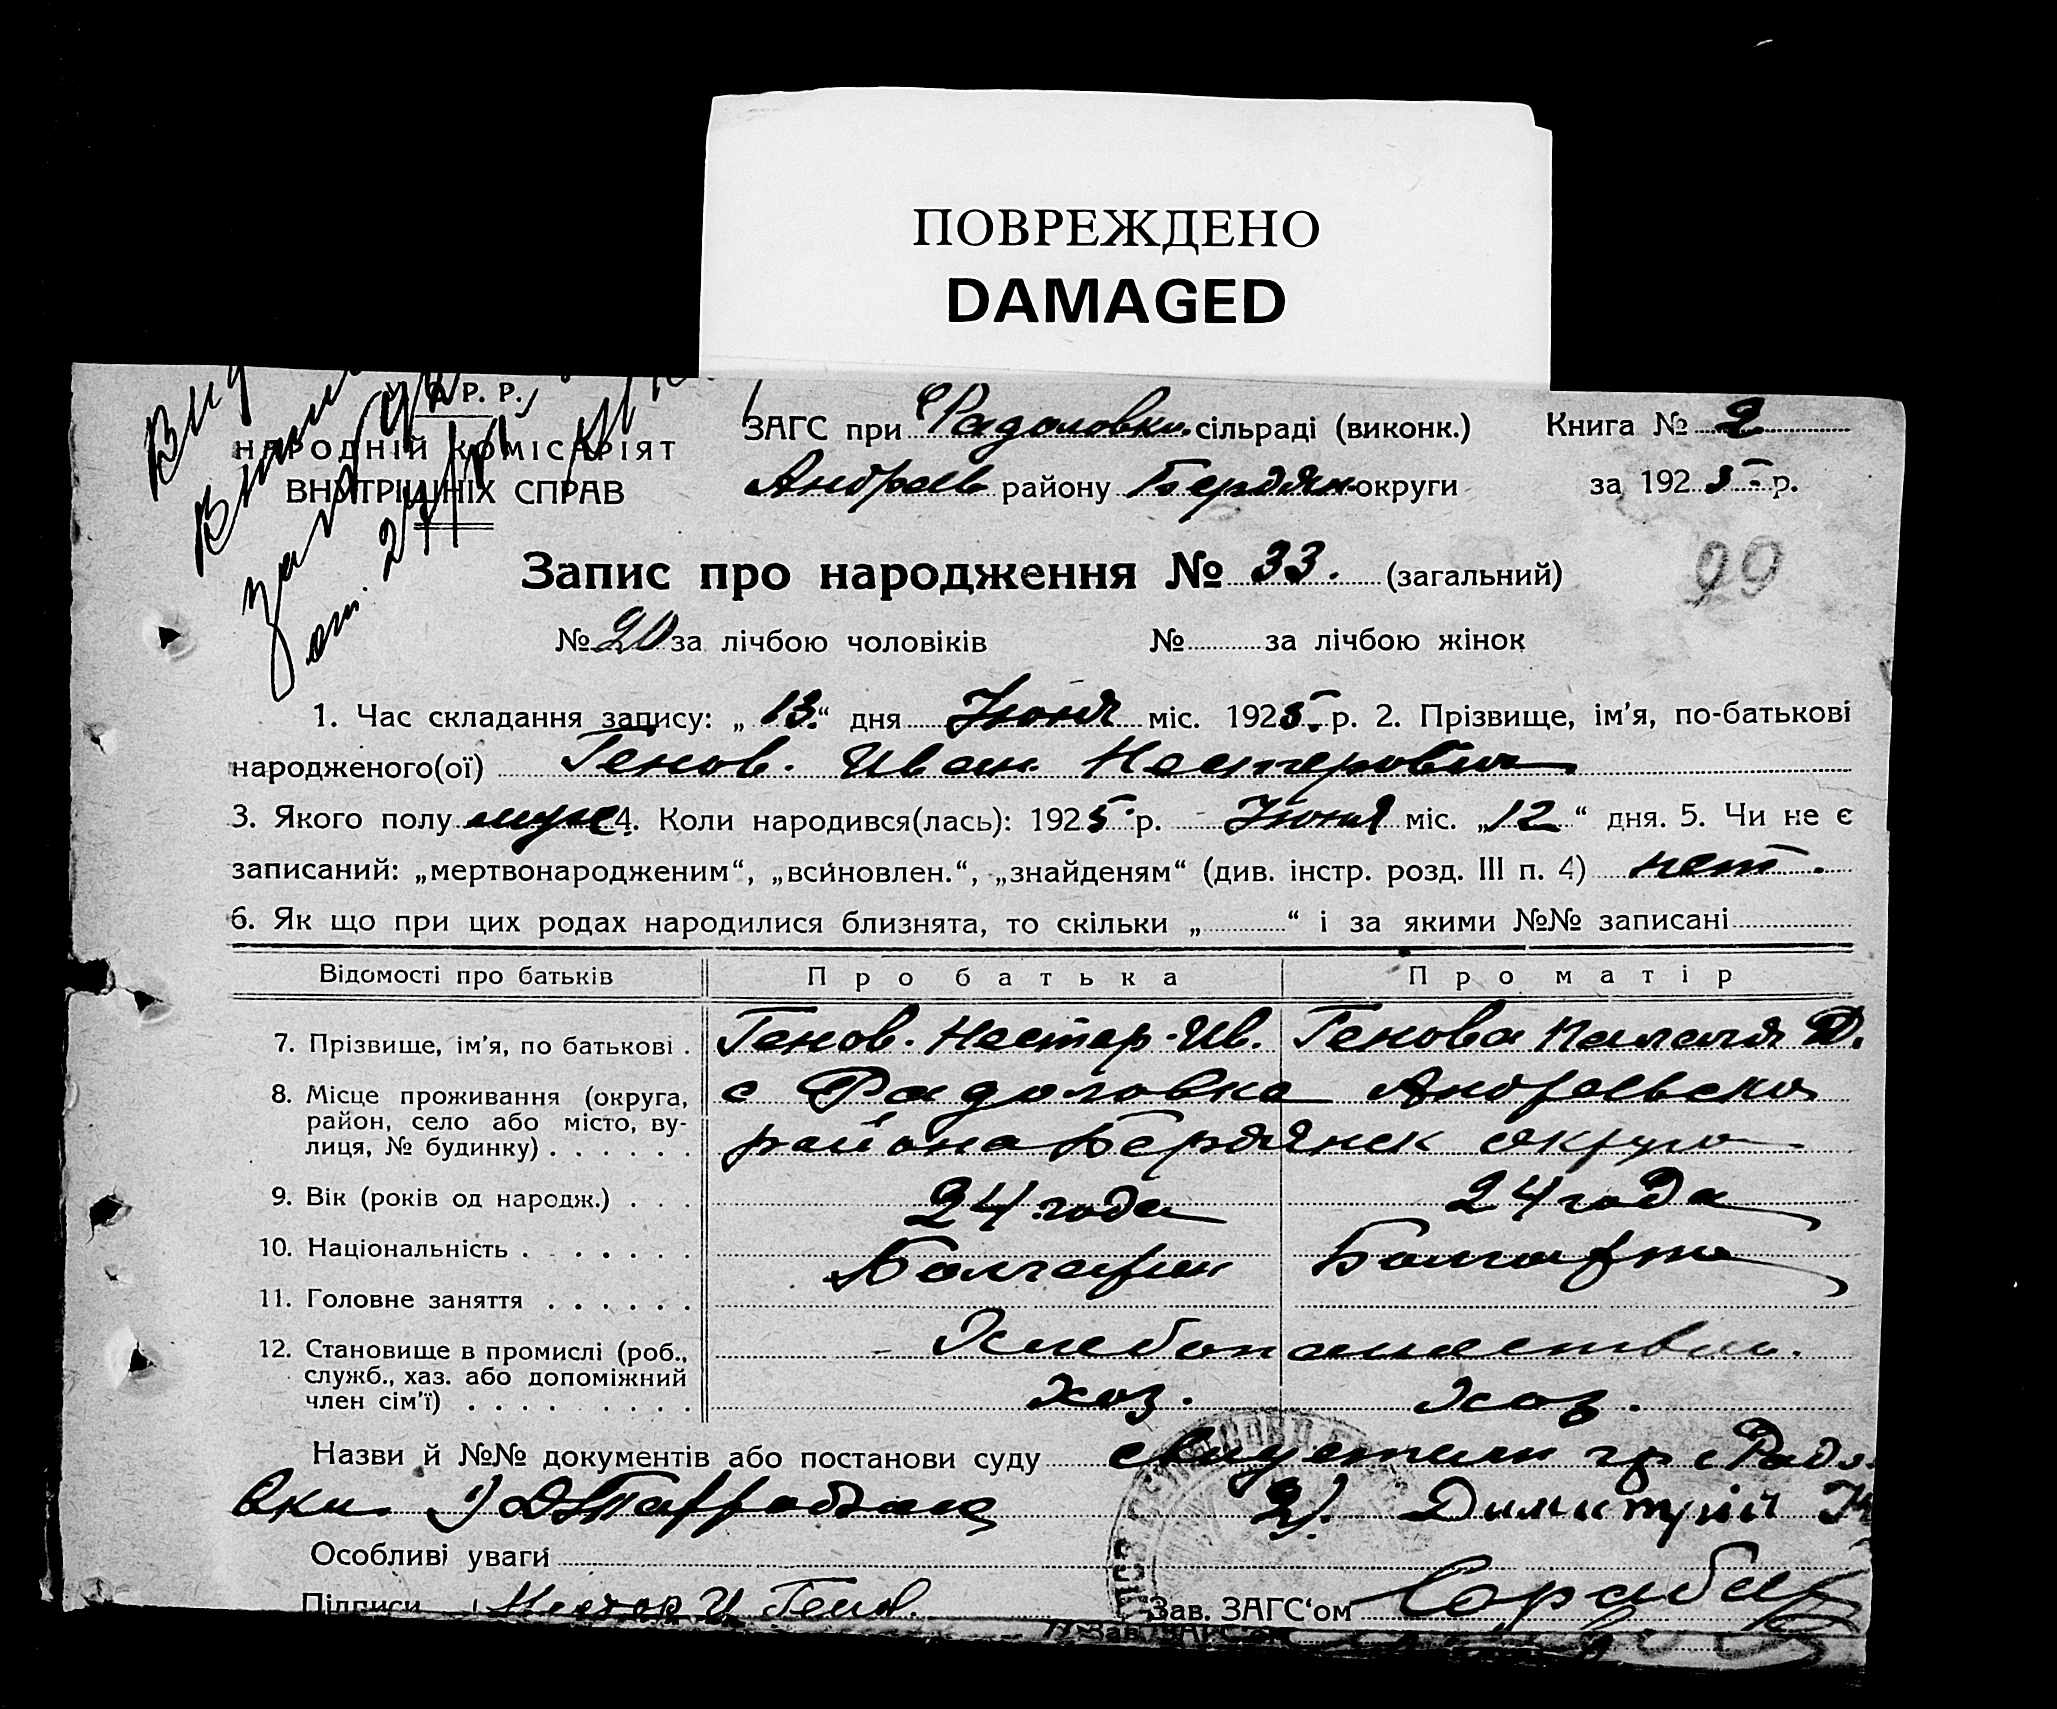 ПОВРЕЖДЕНО
DAMAGED
У. С. Р. Р.
НАРОДНІЙ КОМІСАРІЯТ
ВНУТРІШНІХ СПРАВ
ЗАГС при Радоловки сільраді (виконк.) Книга № 2
Андреев району Бердян округи за 1925 р.
Запис про народження № 33. (загальний)
99
№ 20 за лічбою чоловіків № за лічбою жінок
1. Час складання запису: „ 13.“ дня Июня міс. 1925 р. 2. Прізвище, ім'я, по-батькові
народженого(ої) Генов. Иван Нестерович
3. Якого полу муж 4. Коли народився(лась): 1925 р. Июня міс. „12“ дня. 5. Чи не є
записаний: „мертвонародженим“, „всиновлен.“, „знайденям“ (див. інстр. розд. III п. 4) нет.
6. Як що при цих родах народилися близнята, то скільки „ “ і за якими №№ записані
Відомості про батьків Про батька Про матір
7. Прізвище, ім'я, по батькові . Генов. Нестер. Ив. Генова Палагія Д.
8. Місце проживання (округа, с Радоловка Андреевска
район, село або місто, ву-
лиця, № будинку) . . . . . . района Бердянск округа
9. Вік (років од народж.) . . . 24 года 24 года
10. Національність . . . . . . . Болгарин Болгарка
11. Головне заняття . . . . . .
12. Становище в промислі (роб., Хлебопашество.
служб., хаз. або допоміжний
член сім'ї) . . . . . . . . . Хоз. Хоз.
Назви й №№ документів або постанови суду гр с Радо
вки 1) 2). Димитрій
Особливі уваги
Підписи Нестор И Генов. Зав. ЗАГС'ом
Зав. ЗАГС'ом